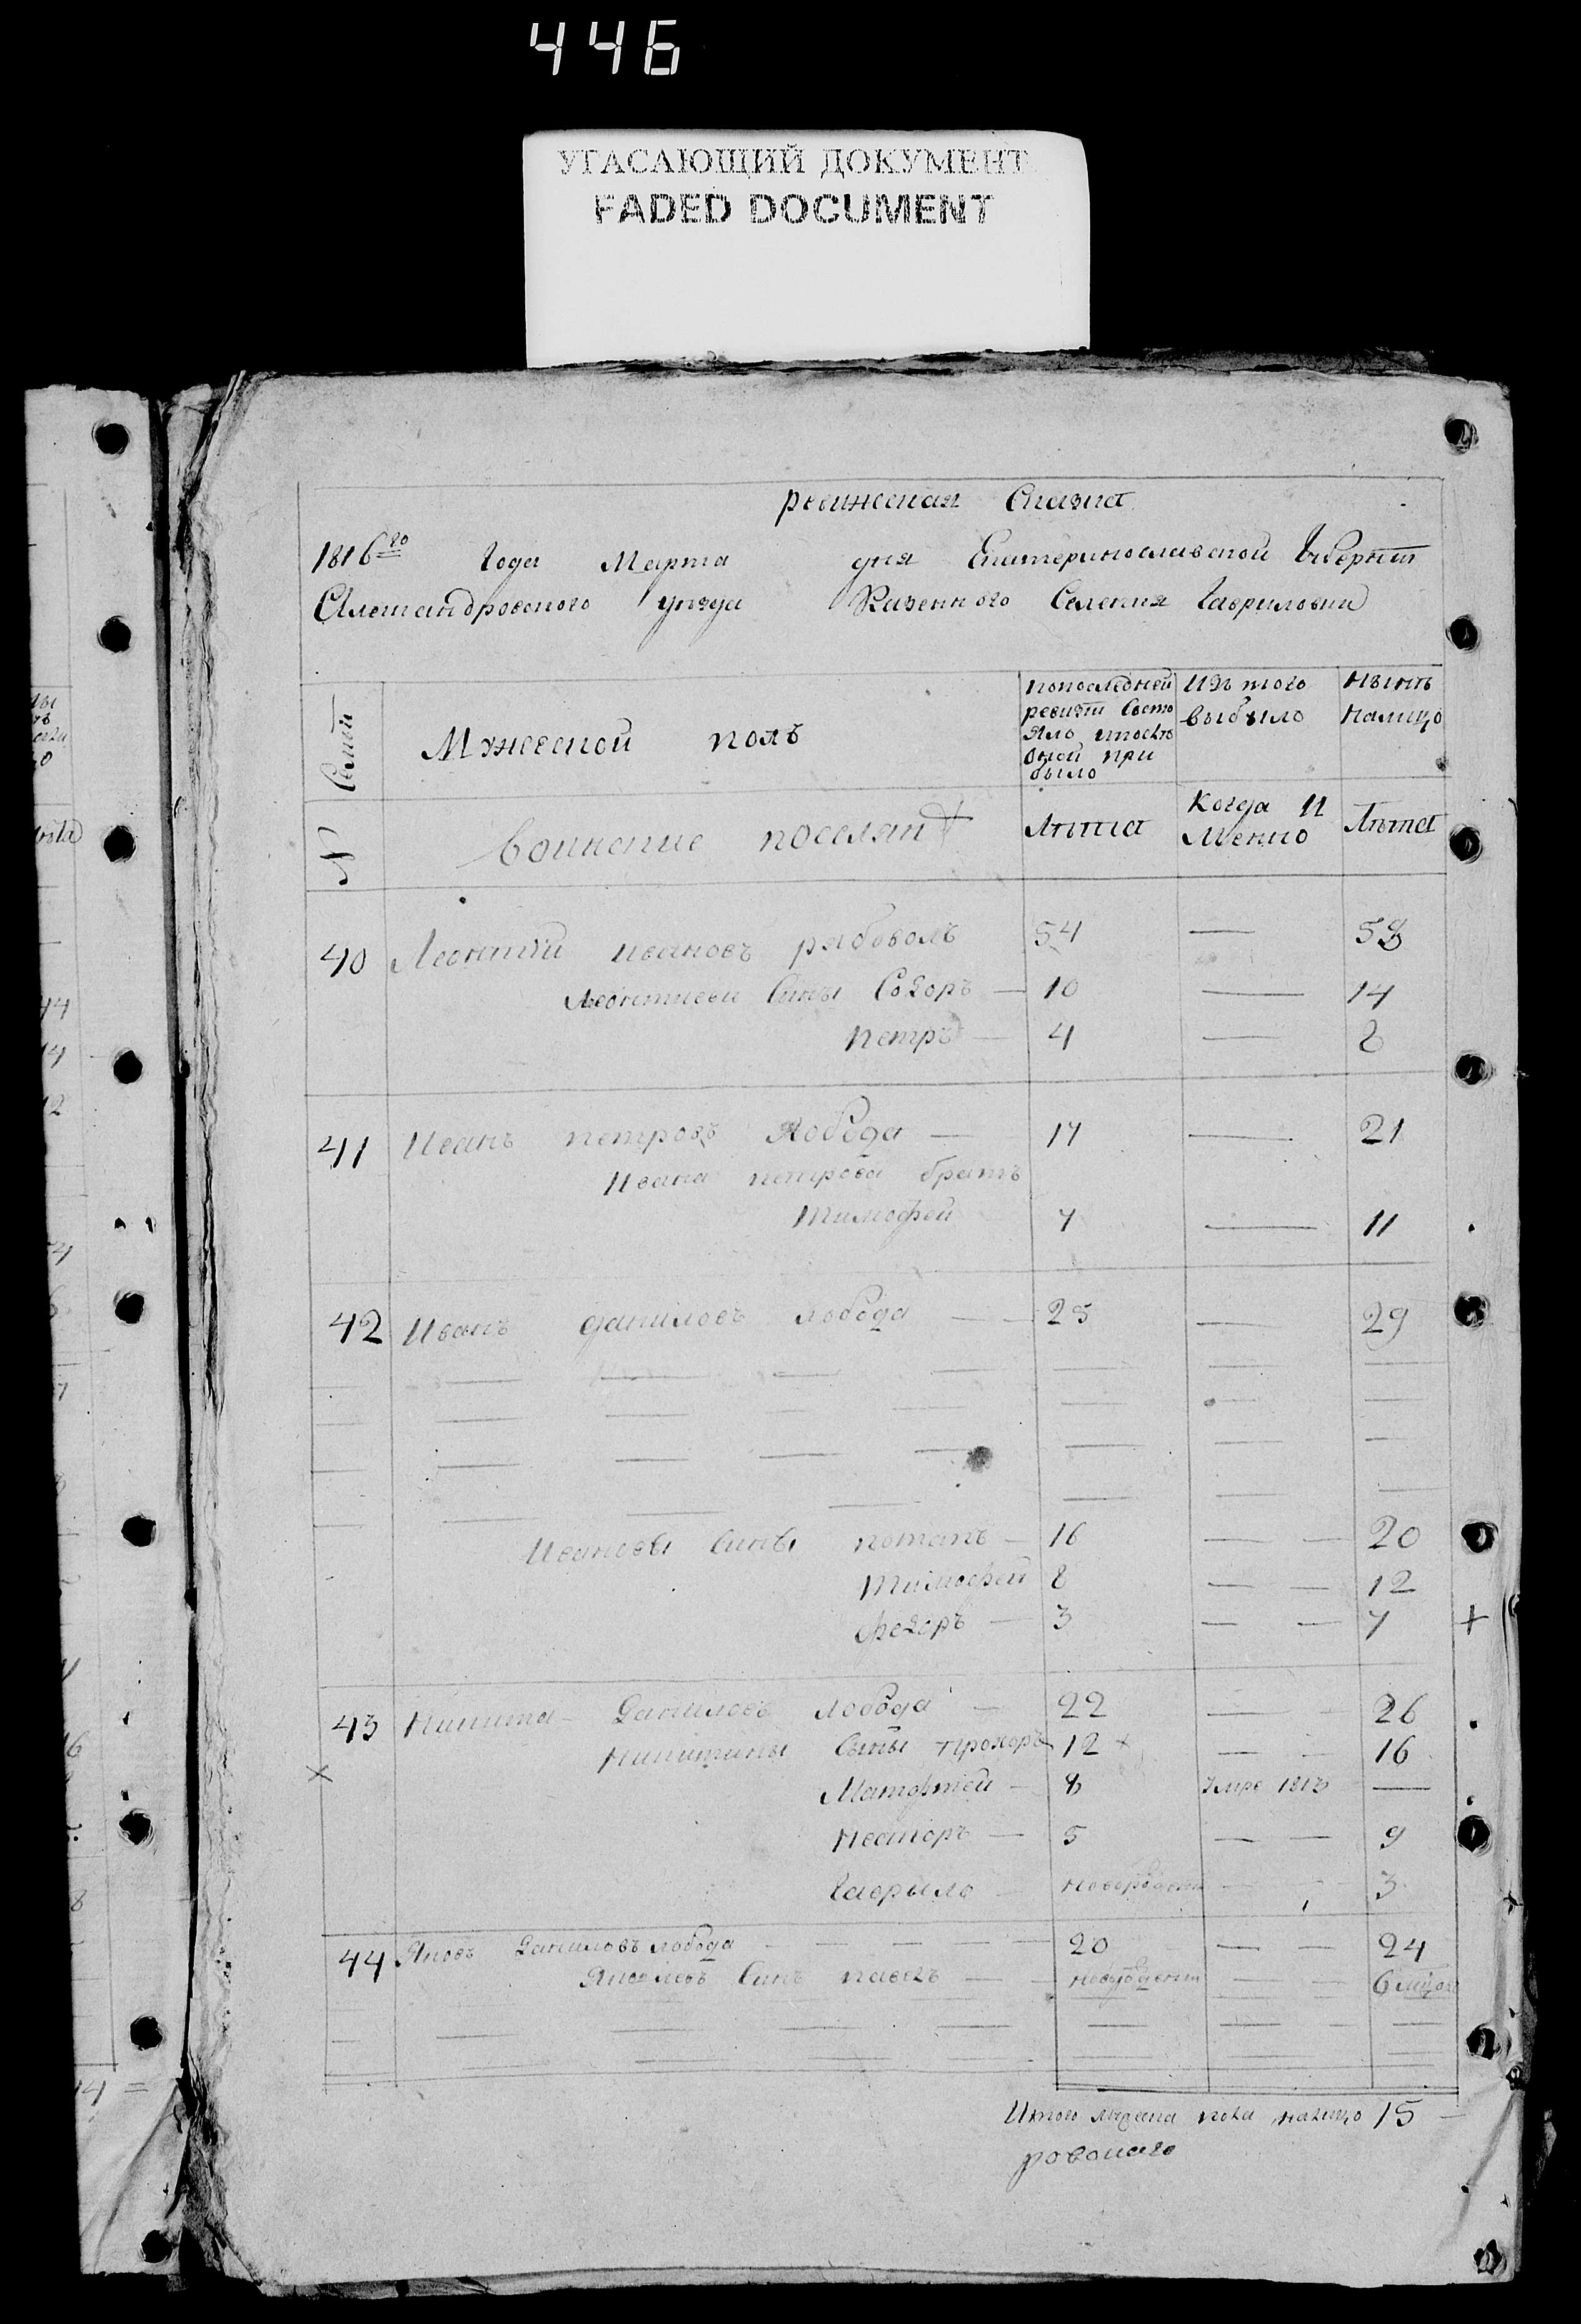 446
УГАСАЮЩИЙ ДОКУМЕНТ
FADED DOCUMENT
ревижская Сказка
1816го Года Марта дня Екатеринославской Губерніи
Александровского уезда Казенного Селения Гавриловки
Семьи
Мужеской полъ
попоследней ревизіи Состо яло ипослѣ оной при было
Изъ того выбыло
Нынѣ налицо
№
Воинские поселян
Лѣта
Когда И Менно
Лѣта
40 Леонтий ивановъ рябоволъ 54 — 58
Леонтиеви Сины Сидоръ — 10 — 14
петръ — 4 — 8
41 Иванъ петровъ Лобода — 17 — 21
Ивана петрова братъ
Тимофей 7 — 11
42 Иванъ даниловъ лобода — 25 — 29
Ивановы Сины потапъ — 16 — 20
Тимофей 8 — 12
федоръ — 3 — 7
43 Никита Даниловъ лобода — 22 — 26
Никитины Сыны прохоръ 12 — 16
Матфтей — 8 умре 1813 —
Некторъ — 5 — 9
Гаврыло — новорожден — 3
44 Яковъ Даниловъ лобода — 20 — 24
Яковлевъ Синъ павелъ — новорожден — 6 мцов
Итого мужеска пола налицо 15